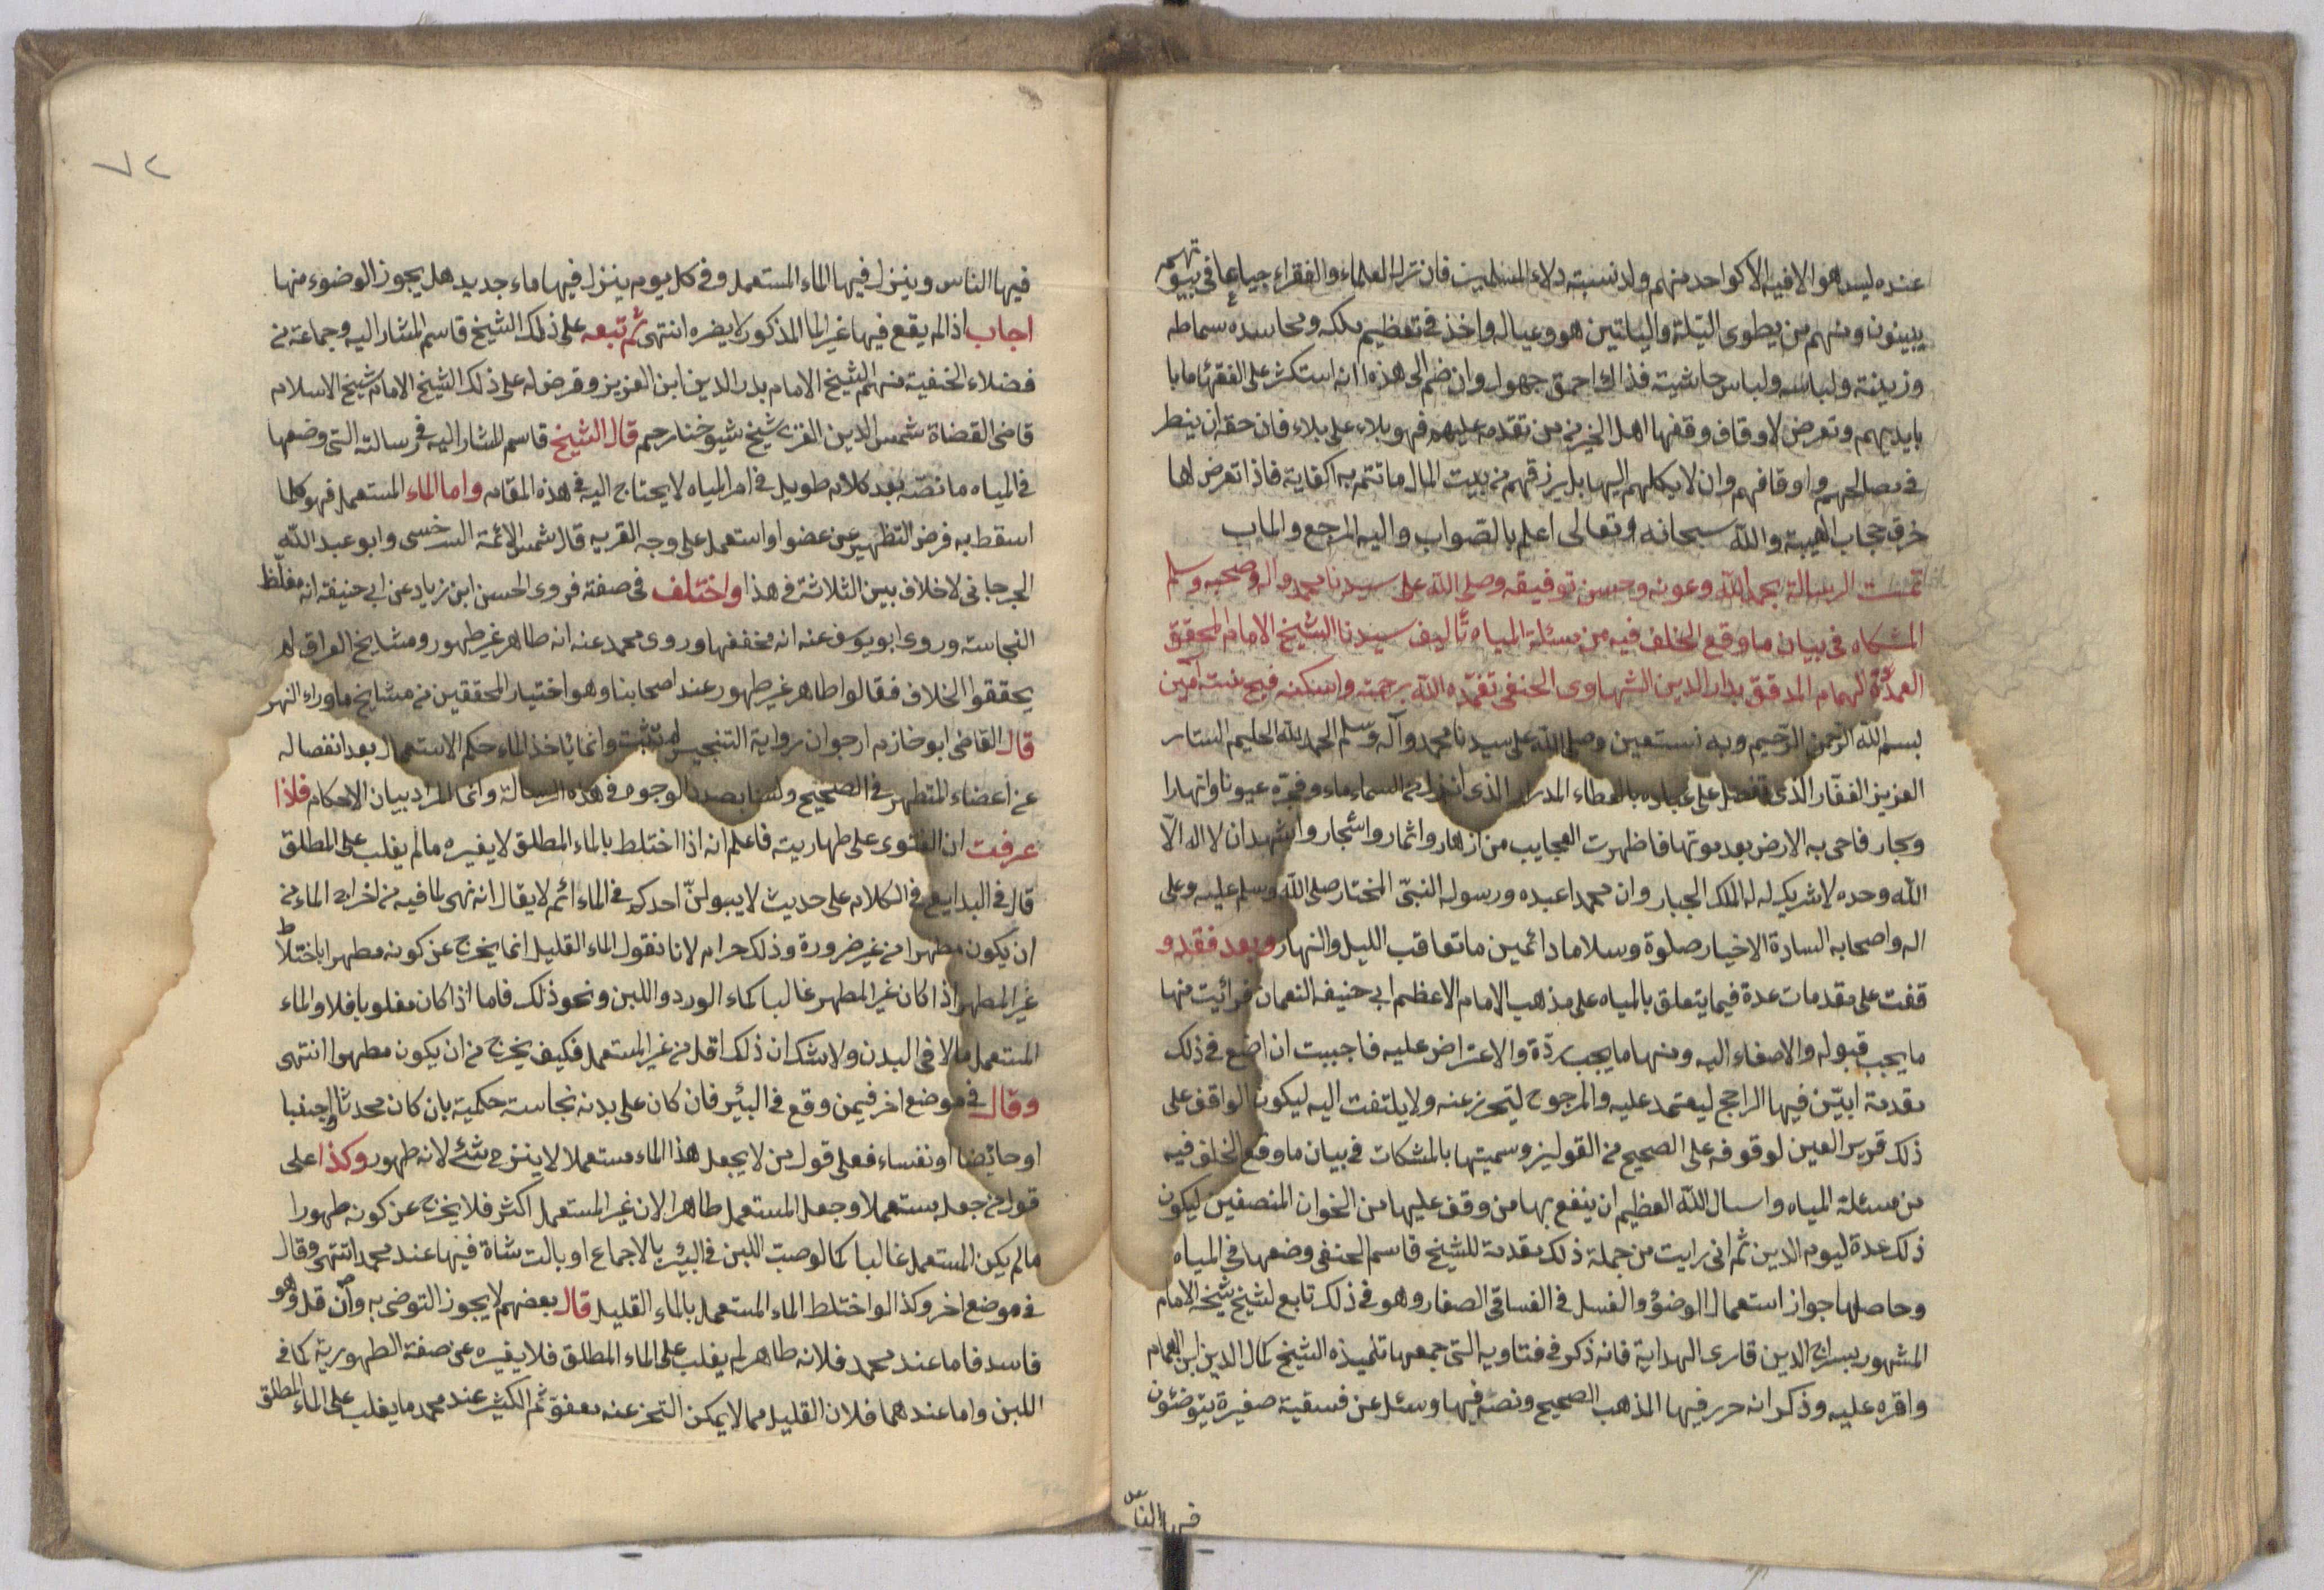 عنده ليس هو الا فيه الا كواحد منهم ولد نسبته دلاء المسلمين فان ترك العلماء والفقراء جياعا في بيوتهم
يبيتون ومنهم من يطوى الليلة والليلتين هو وعياله واخذ في تعظيم ملكه ومحاسده سماطه
وزينة ولباسه ولباس حاشيته فذاك احمق جهول وان ضم الى هذا انه استكثر على الفقهاء ما با
بايديهم وتعرض لاوقاف وقفها اهل الخير من تقدمه عليهم فهو بلاء على بلاء فان حقه ان ينظر
في مصالحهم واوقافهم وان لا يكلهم اليها بل يرزقهم من بيت المال ما تتم به الكفاية فاذا تعرض لها
خرق حجاب الهيبة والله سبحانه وتعالى اعلم بالصواب واليه المرجع والماب
تمت الرسالة بحمد الله وعونه وحسن توفيقه وصلى الله على سيدنا محمد واله وصحبه وسلم
المشكاه في بيان ما وقع الخلف فيه من مسئلة المياه تأليف سيدنا الشيخ الامام المحقق
العمدة الهمام المدقق بدر الدين الشهاوى الحنفى تغمده الله برحمته واسكنه فسيح جنته آمين
بسم الله الرحمن الرحيم وبه نستعين وصلى الله على سيدنا محمد وآله وسلم الحمد لله الحليم الستار
العزيز الغفار الذى تفضل على عباده بالعطاء المدرار الذى انزل من السماء ماء وفجره عيونا وانهارا
وبحار فاحى به الارض بعد موتها فاظهرت العجايب من ازهار واثمار واشجار واشهد ان لا اله الا
الله وحده لا شريك له له الملك الجبار وان محمدا عبده ورسوله النبي المختار صلى الله وسلم عليه وعلى
اله واصحابه السادة الاخيار صلوة وسلاما دائمين ما تعاقب الليل والنهار وبعد فقد و
قفت على مقدمات عدة فيما يتعلق بالمياه على مذهب الامام الاعظم ابي حنيفة النعمان فرأيت منها
ما يجب قبوله والاصغاء اليه ومنها ما يجب ردّه والاعتراض عليه فاحببت ان اضع في ذلك
مقدمة ابيّن فيها الراجح ليعتمد عليه والمرجوح ليتحرز عنه ولا يلتفت اليه ليكون الواقف على
ذلك قرير العين لوقوفه على الصحيح من القولين وسميتها بالمشكات في بيان ما وقع الخلف فيه
من مسئلة المياه واسال الله العظيم ان ينفع بها من وقف عليها من الخوان المنصفين ليكون
ذلك عدة ليوم الدين ثم انى رايت من جملة ذلك مقدمة للشيخ قاسم الحنفى وضعها في المياه
وحاصلها جواز استعمال الوضوء والغسل في الفساقى الصغار وهو في ذلك تابع لشيخ شيخه الامام
المشهور بسراج الدين قارى الهداية فانه ذكر في فتاويه التى جمعها تلميذه الشيخ كمال الدين ابن الهمام
واقره عليه وذكر انه حرر فيها المذهب الصحيح ونصه فيها وسئل عن فسقية صغيرة يتوضئون
فيها الناس
٧٢
فيها الناس وينزل فيها الماء المستعمل وفي كل يوم ينزل فيها ماء جديد هل يجوز الوضوء منها
اجاب اذا لم يقع فيها غير الما المذكور لا يضره انتهى ثم تبعه على ذلك الشيخ قاسم المشار اليه وجماعة من
فضلاء الحنفية منهم الشيخ الامام بدر الدين ابن الغزيز وقرض له على ذلك الشيخ الامام شيخ الاسلام
قاضى القضاة شمس الدين الغزى شيخ شيوخنا رحم قال الشيخ قاسم المشار اليه في رسالته التى وضعها
في المياه ما نصه بعد كلام طويل في امر المياه لا يحتاج اليه في هذه المقام واما الماء المستعمل فهو كلما
اسقط به فرض التطهير عن عضو او استعمل على وجه القربه قال شمس الائمة السرخسى وابو عبد الله
الجرجانى لا خلاف بين الثلاثة في هذا واختلف في صفته فروى الحسن ابن زياد عن ابي حنيفه انه مغلظ
النجاسته وروى ابو يوسف عنه انه مخففها وروى محمد عنه انه طاهر غير طهور ومشايخ العراق لم
يحققوا الخلاف فقالوا طاهر غير طهور عند اصحابنا وهو اختيار المحققين من مشايخ ماوراء النهر
قال القاضى ابو خازم ارجو ان رواية التنجيس لم تثبت وانما ياخذ الماء حكم الاستعمال بعد انفصاله
عن اعضاء المتطهر في الصحيح ولسنا بصدد الوجوه في هذه الرسالة وانما المراد بيان الاحكام فاذا
عرفت ان الفتوى على طهاريته فاعلم انه اذا اختلط بالماء المطلق لا يغيره مالم يغلب على المطلق
قال في البدايع في الكلام على حديث لا يبولنّ احدكم في الماء الدائم لا يقال انه نهى لما فيه من اخراج الماء من
ان يكون مطهرا من غير ضرورة وذلك حرام لانا نقول الماء القليل انما يخرج عن كونه مطهرا باختلاط
غير المطهر اذا كان غير المطهر غالبا كماء الورد واللبن ونحو ذلك فاما اذا كان مغلوبا فلا والماء
المستعمل مالاقى البدن ولا شك ان ذلك اقل من غير المستعمل فكيف يخرج من ان يكون مطهرا انتهى
وقال في موضع اخر فيمن وقع في البئر فان كان على بدنه نجاسة حكمية بان كان محدثا او جنبا
او حائضا او نفساء فعلى قول من لا يجعل هذا الماء مستعملا لا ينزح شئ لانه طهور وكذا على
قول من جعل مستعملا وجعل المستعمل طاهرا لان غير المستعمل اكثر فلا يخرج عن كونه طهورا
مالم يكن المستعمل غالبا كما لو صب اللبن في البئر بالاجماع او بالت شاة فيها عند محمد انتهى وقال
في موضع اخر وكذا لو اختلط الماء المستعمل بالماء القليل قال بعضهم لا يجوز التوضى به وان قل وهو
فاسد فاما عند محمد فلانه طاهر لم يغلب على الماء المطلق فلا يغيره عن صفة الطهورية كما في
اللبن واما عندهما فلان القليل مما لا يمكن التحرز عنه معفوّ ثم الكثير عند محمد ما يغلب على الماء المطلق